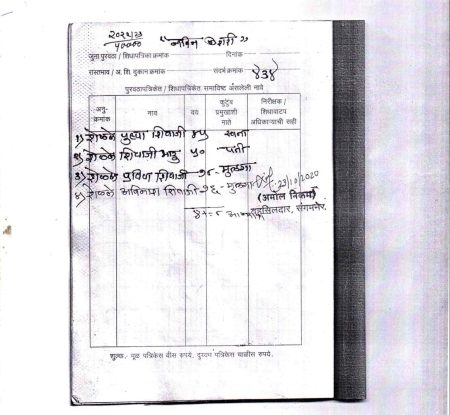 २०२१/२२
५००००
"नविन केशरी"
जुना पुरवठा / शिधापत्रिका क्रमांक दिनांक
रास्तभाव / अ. शि. दुकान क्रमांक संदर्भ क्रमांक ४३४
पुरवठापत्रिकेत / शिधापत्रिकेत समाविष्ट असलेली नावे
अनु-क्रमांक नाव वय कुटुंब प्रमुखाशी नाते निरीक्षक / शिधावाटप अधिकाऱ्याची सही
१) शेळके पुष्पा शिवाजी ४५ स्वतः
२) शेळके शिवाजी भानु ५० पती
३) शेळके प्रविण शिवाजी मुलगा
४) शेळके अविनाश शिवाजी मुलगा
23/10/2020
(अमोल निकम)
तहसिलदार, संगमनेर.
शुल्क. मूळ पत्रिकेस वीस रुपये, दुय्यम पत्रिकेस चाळीस रुपये.